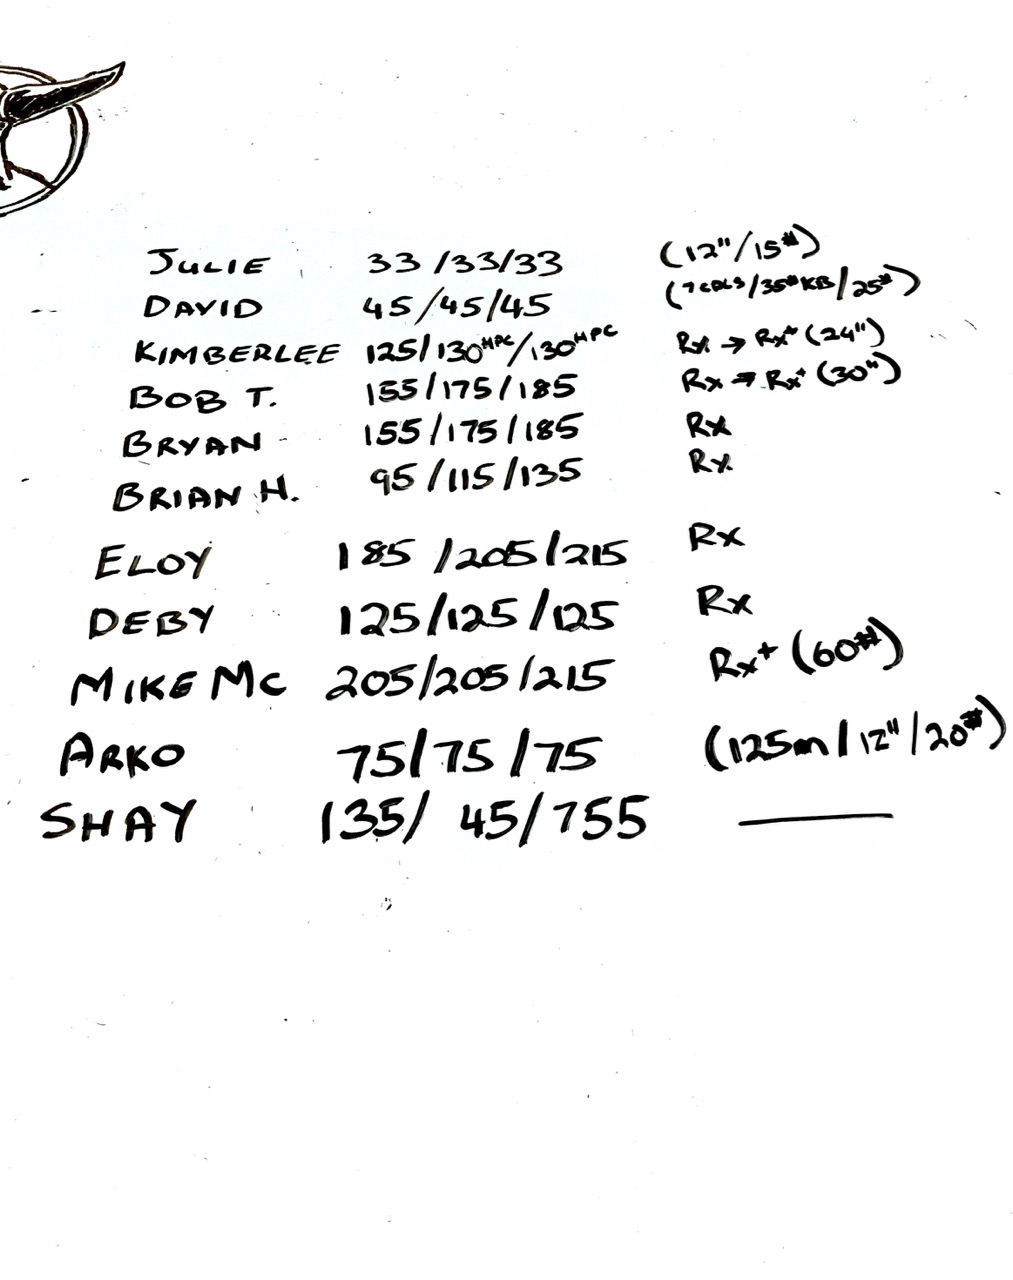 JULIE 33/33/33 (12"/15#)
DAVID 45/45/45 (7 CALS/35# KB/25#)
KIMBERLEE 125/130HPC/130HPC Rx → Rx+ (24")
BOB T. 155/175/185 Rx → Rx+ (30")
BRYAN 155/175/185 Rx
BRIAN H. 95/115/135 Rx
ELOY 185/205/215 Rx
DEBY 125/125/125 Rx
MIKE MC 205/205/215 Rx+ (60#)
ARKO 75/75/75 (125m/12"/20#)
SHAY 135/ 45/755 —